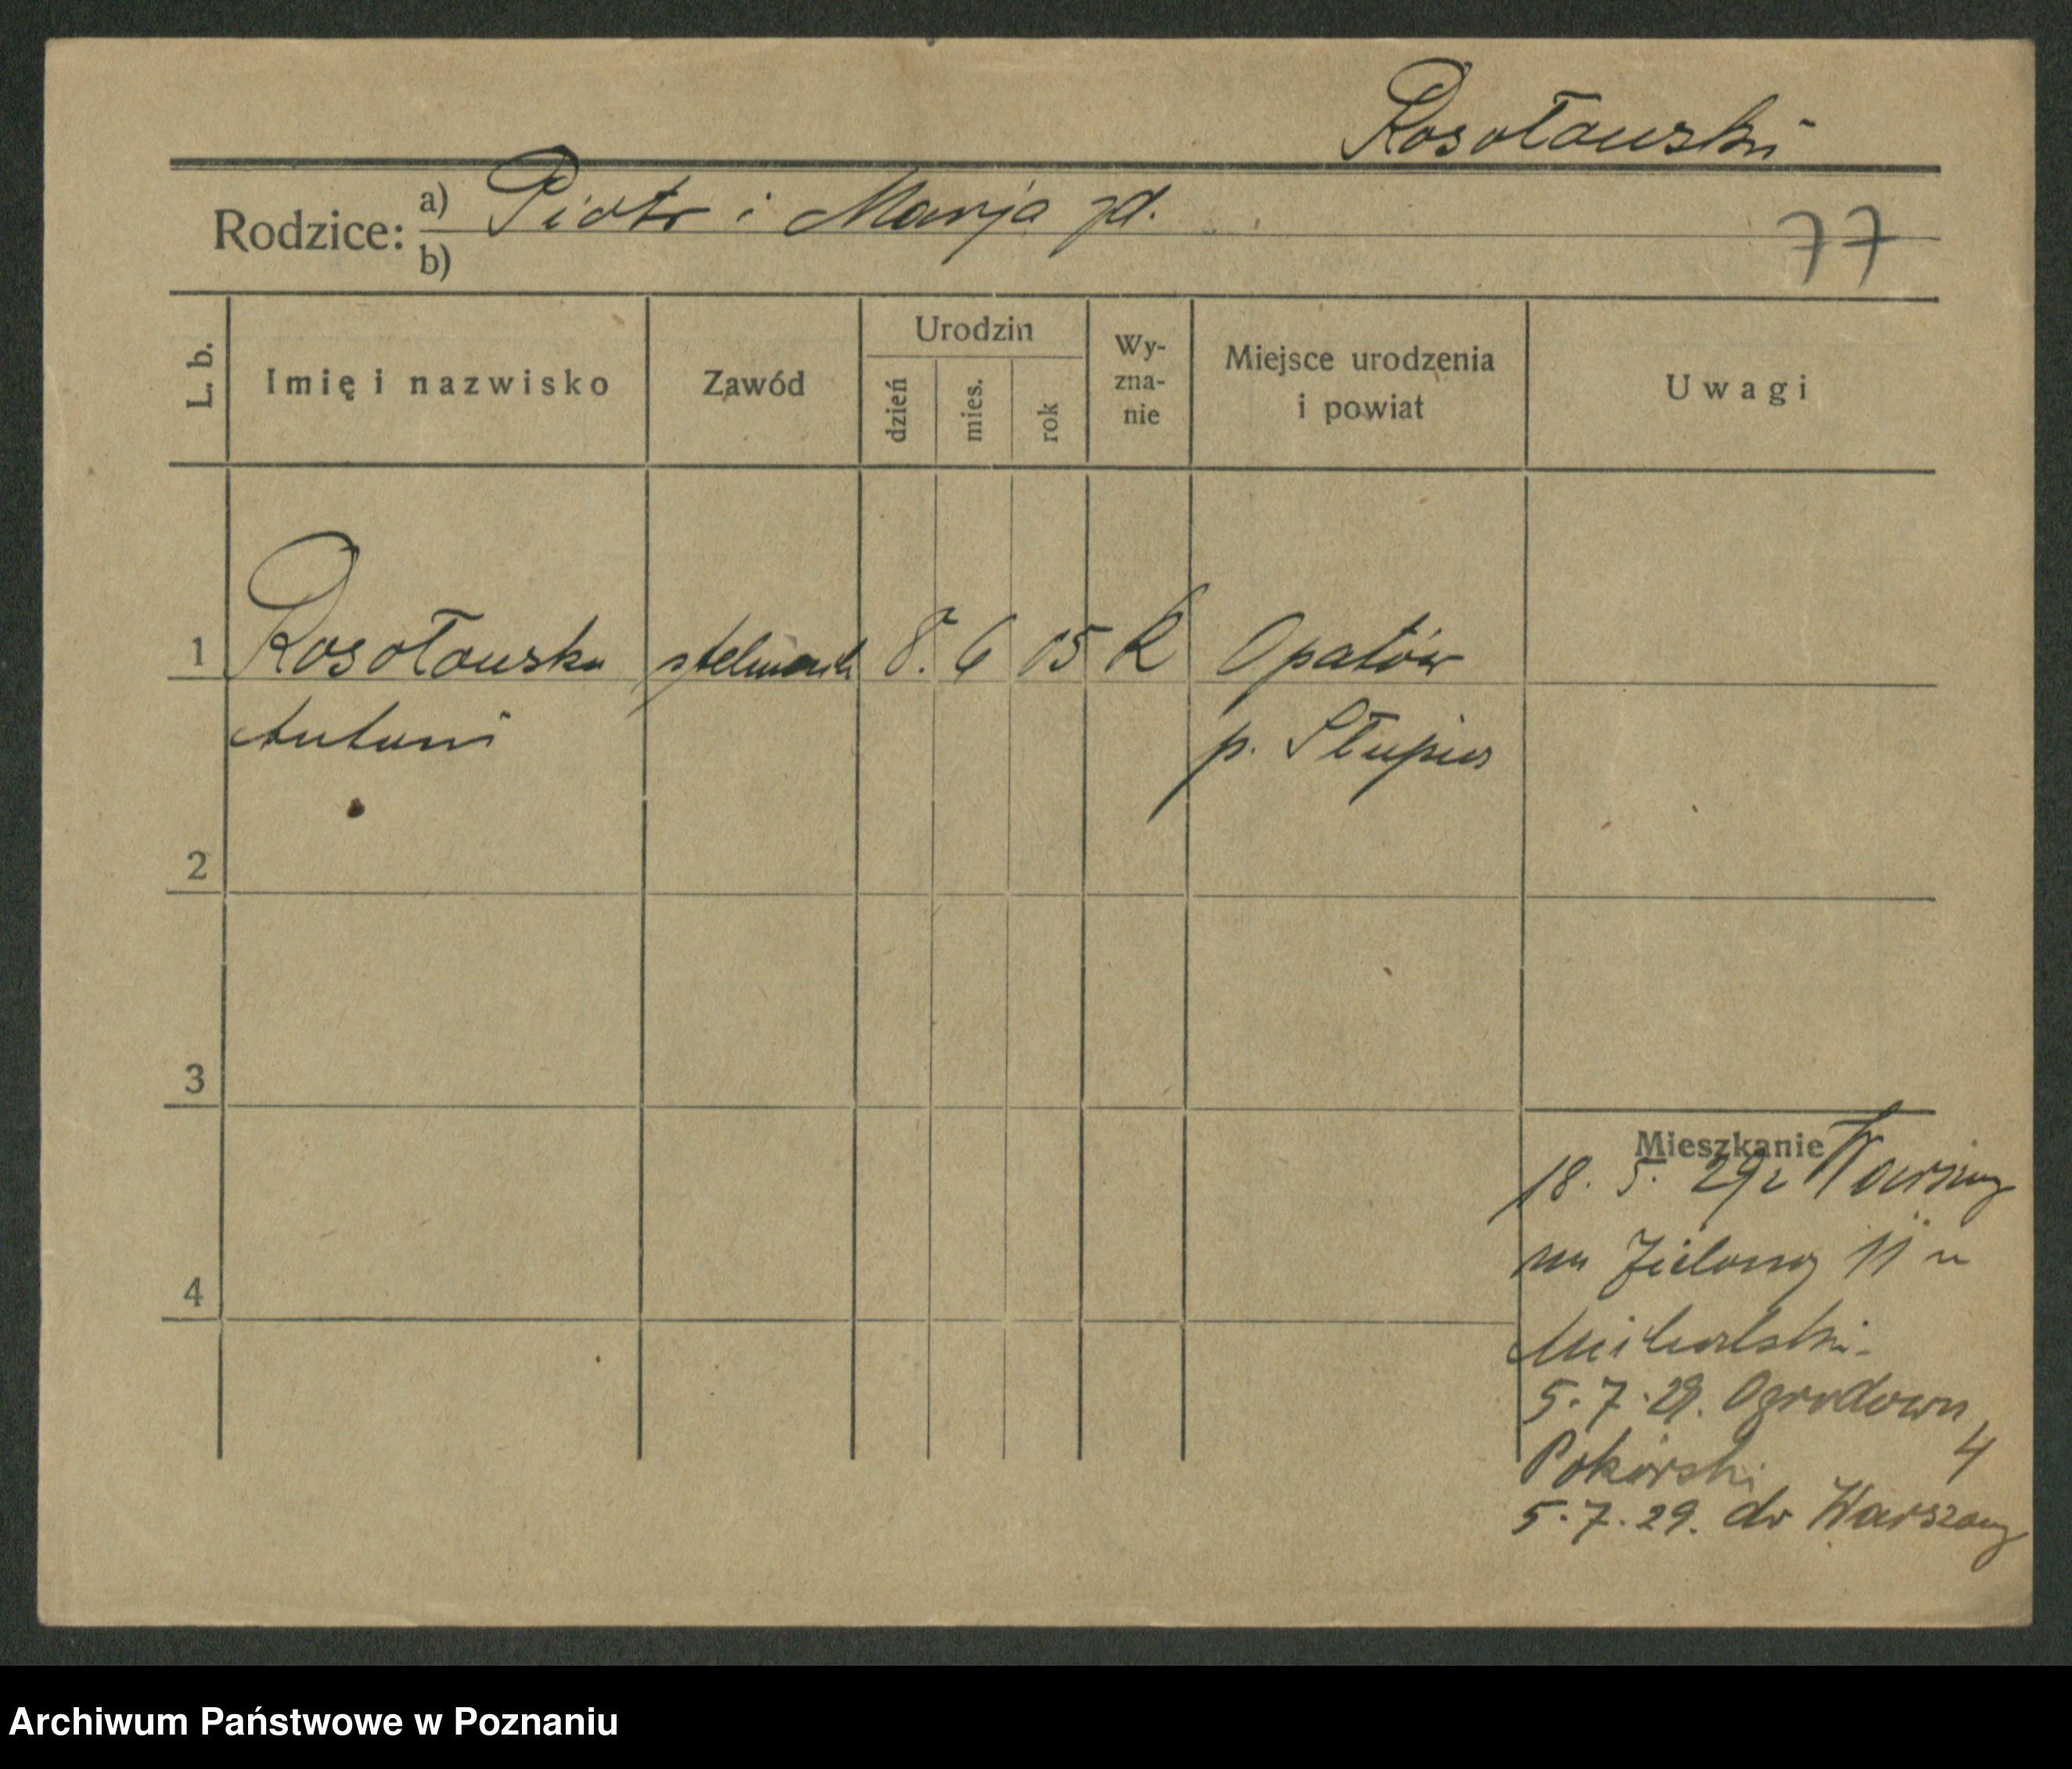 Rosołowski
Rodzice: a) Piotr i Marja zd.
b)
77
L. b.
Imię i nazwisko
Zawód
Urodzin
dzień
mies.
rok
Wy-
zna-
nie
Miejsce urodzenia
i powiat
Uwagi
1 Rosołowski stelmach 8. 6 05 K Opatów
Antoni p. Słupia
2
3
4
Mieszkanie
18. 5. 29 z Warszawy
na Zielona 11 u
Michalski.
5.7.29. Ogrodowa 4
Pokorski
5.7.29. do Warszawy
Archiwum Państwowe w Poznaniu